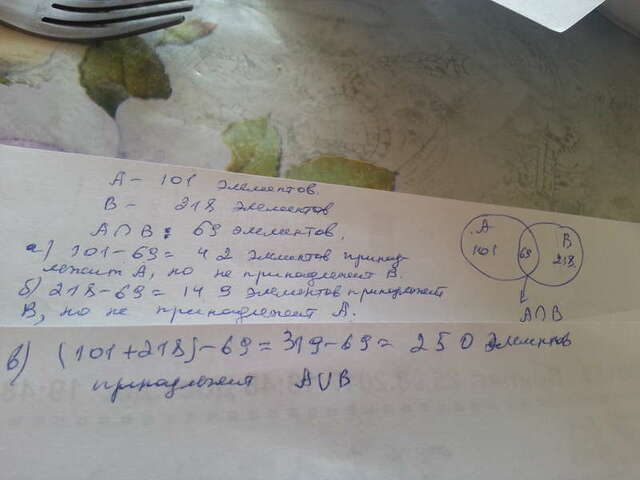 A – 101 элементов.
B – 218 элементов
A∩B: 69 элементов.
а) 101-69 = 42 элементов принад-
лежит A, но не принадлежит B.
б) 218-69 = 149 элементов принадлежит
B, но не принадлежит A.
в) (101+218)-69 = 319-69 = 250 элементов
принадлежит A∪B
A
B
101
69
218
A∩B